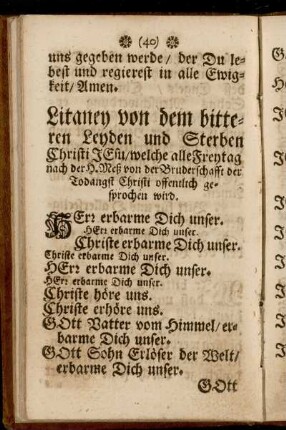 (40)
uns gegeben werde/ der Du le-
best und regierest in alle Ewig-
keit/ Amen.
Litaney von dem bitte-
ren Leyden und Sterben
Christi JEsu/ welche alle Freytag
nach der H. Meß von der Bruderschafft der
Todangst Christi offentlich ge-
sprochen wird.
HErr erbarme Dich unser.
HErr erbarme Dich unser.
Christe erbarme Dich unser.
Christe erbarme Dich unser.
HErr erbarme Dich unser.
HErr erbarme Dich unser.
Christe höre uns.
Christe erhöre uns.
GOtt Vatter vom Himmel/ er-
barme Dich unser.
GOtt Sohn Erlöser der Welt/
erbarme Dich unser.
GOtt